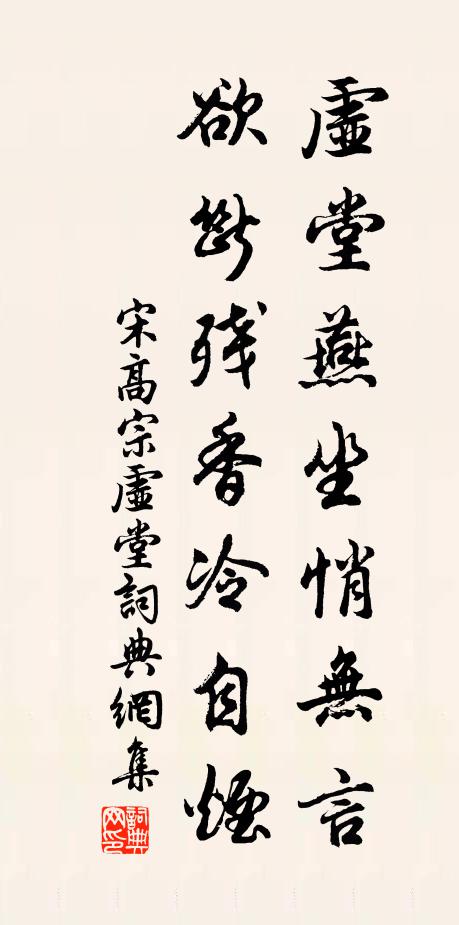 虛堂燕坐悄無言
欲斷殘香冷自煙
宋高宗虛堂詞典網集
詞典網印